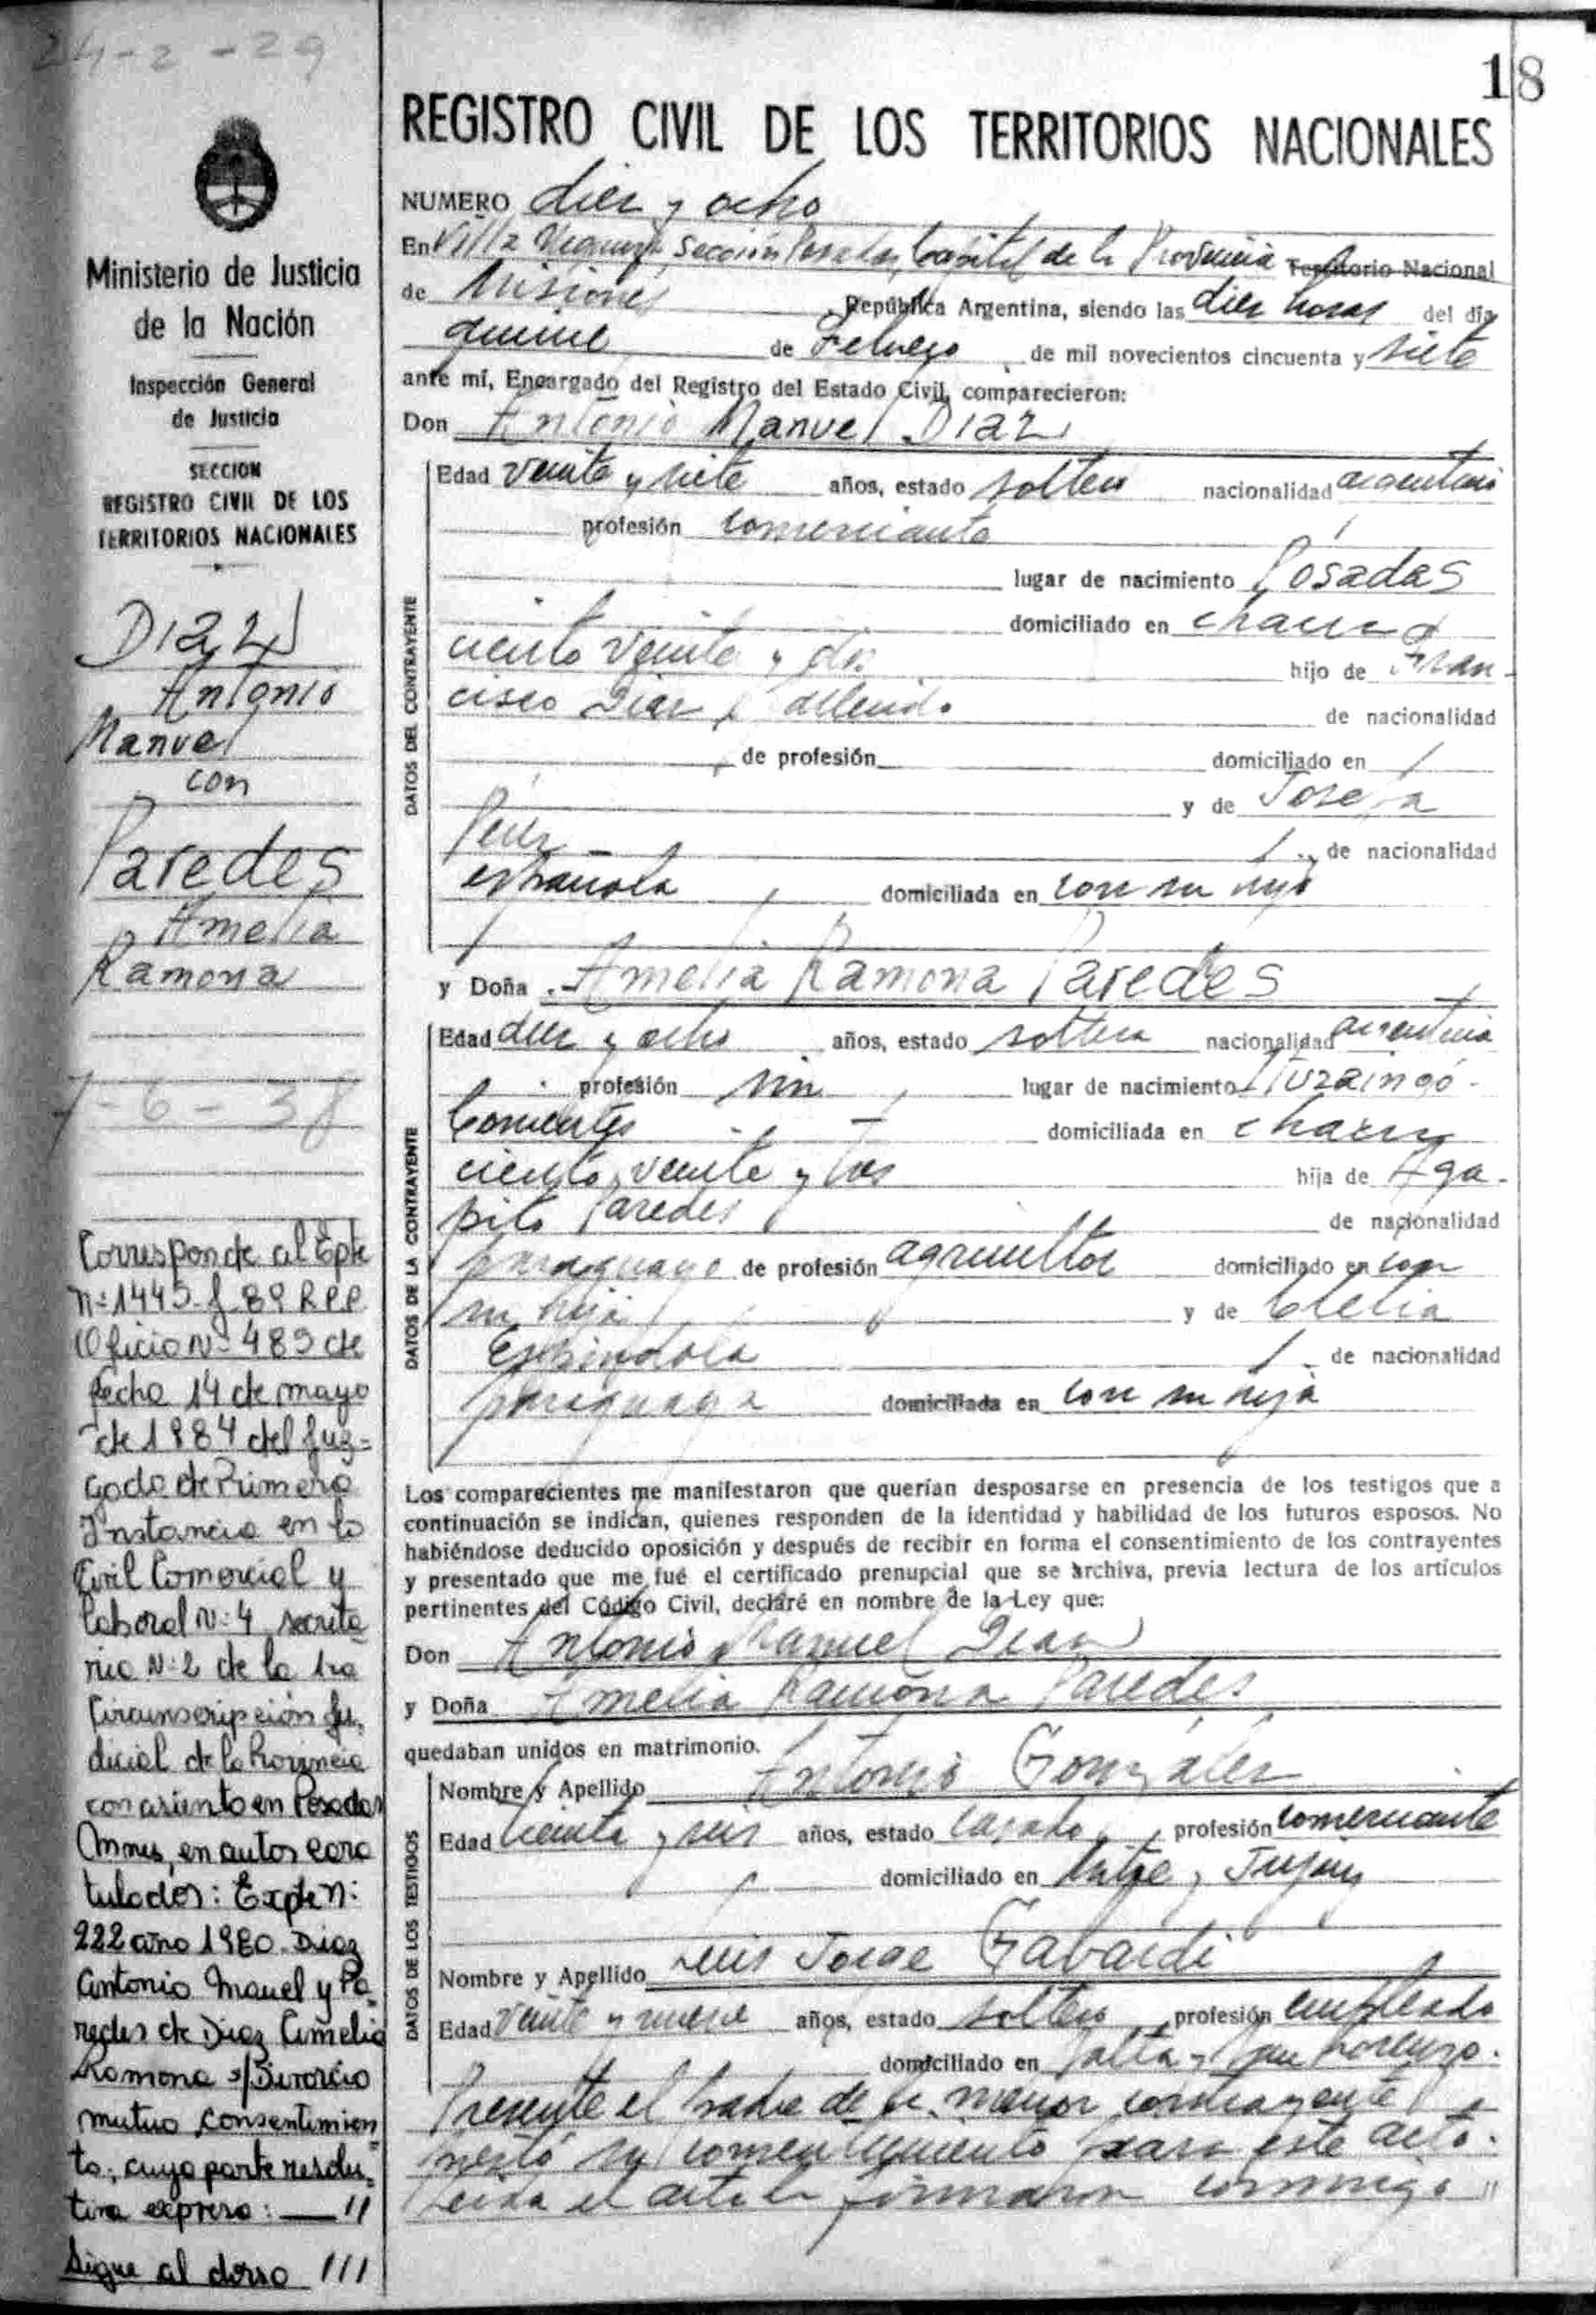 24-2-29
18
Ministerio de Justicia
de la Nación
Inspección General
de Justicia
SECCION
REGISTRO CIVIL DE LOS
TERRITORIOS NACIONALES
DIAZ
Antonio
Manuel
con
Paredes
Amelia
Ramona
7-6-38
Corresponde al Epte
Nº 1445-f 89 R.P.P.
Oficio Nº 489 de
fecha 14 de mayo
de 1984 del Juz-
gado de Primera
Instancia en lo
Civil Comercial y
Laboral Nº 4 secreta
ria Nº 2 de la 1ra
Circunscripción Ju-
dicial de la Provincia
con asiento en Posadas
Mnes, en autos cara
tulados: Expte Nº
222 año 1980. Diaz
Antonio Manuel y Pa-
redes de Diaz Amelia
Ramona s/Divorcio
mutuo consentimien
to, cuya parte resolu-
tiva expresa: — //
Sigue al dorso ///
REGISTRO CIVIL DE LOS TERRITORIOS NACIONALES
NUMERO diez y ocho
En Villa Sección Posadas, Capital de la Provincia Territorio Nacional
de Misiones, República Argentina, siendo las diez horas del día
quince de Febrero de mil novecientos cincuenta y siete
ante mí, Encargado del Registro del Estado Civil, comparecieron:
Don Antonio Manuel DIAZ
DATOS DEL CONTRAYENTE
Edad veinte y siete años, estado soltero nacionalidad argentino
profesión comerciante
lugar de nacimiento Posadas
domiciliado en
ciento veinte y dos hijo de Fran-
cisco Diaz, fallecido de nacionalidad
de profesión domiciliado en
y de Josefa
Perez de nacionalidad
española domiciliada en con su hijo
y Doña Amelia Ramona Paredes
DATOS DE LA CONTRAYENTE
Edad diez y ocho años, estado soltera nacionalidad argentina
profesión sin lugar de nacimiento Ituzaingó-
Corrientes domiciliada en
ciento veinte y tres hija de Aga-
pito Paredes de nacionalidad
paraguayo de profesión agricultor domiciliado en con
su hija y de Clelia
Espindola de nacionalidad
paraguaya domiciliada en con su hija
Los comparecientes me manifestaron que querían desposarse en presencia de los testigos que a
continuación se indican, quienes responden de la identidad y habilidad de los futuros esposos. No
habiéndose deducido oposición y después de recibir en forma el consentimiento de los contrayentes
y presentado que me fué el certificado prenupcial que se archiva, previa lectura de los artículos
pertinentes del Código Civil, declaré en nombre de la Ley que:
Don Antonio Manuel Diaz
y Doña Amelia Ramona Paredes
quedaban unidos en matrimonio.
DATOS DE LOS TESTIGOS
Nombre y Apellido Antonio Gonzalez
Edad treinta y seis años, estado casado, profesión comerciante
domiciliado en Mitre y Jujuy
Nombre y Apellido Luis Jorge Gabardi
Edad veinte y nueve años, estado soltero, profesión empleado
domiciliado en Salta y San Lorenzo.
Presente el padre de la menor contrayente
prestó su consentimiento para este acto.
Leida el acta la firmaron conmigo //